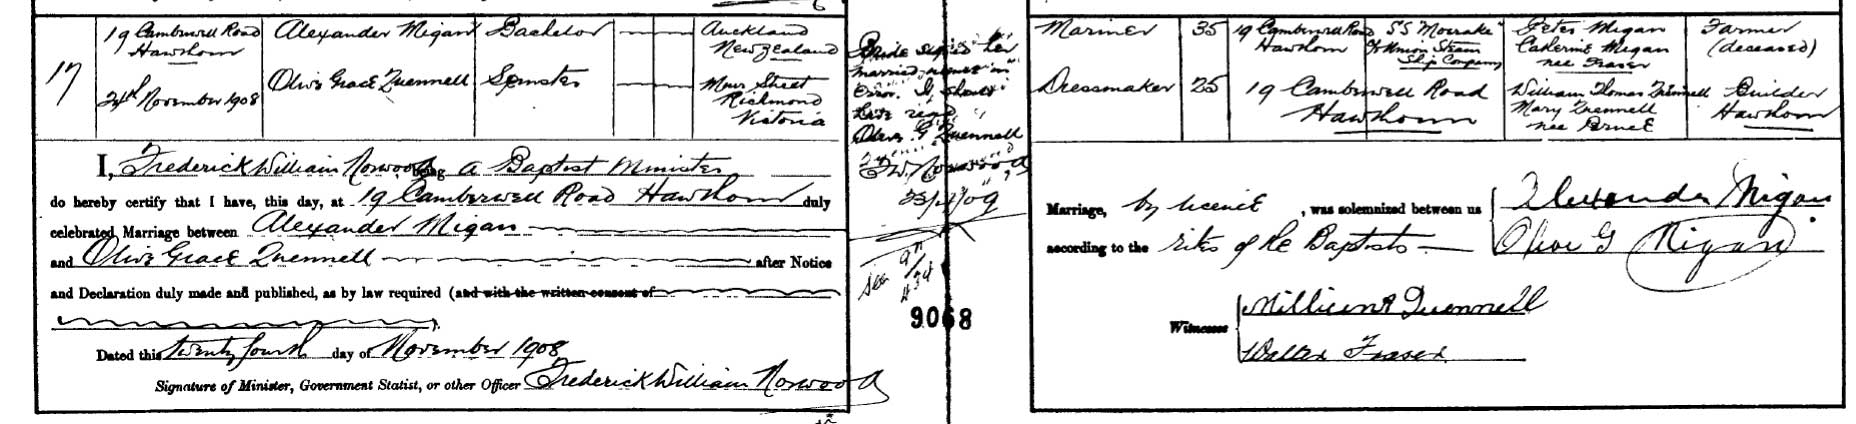 17
19 Camberwell Road
Hawthorn
24th November 1908
Alexander Migan
Olive Grace Quennell
Bachelor
Spinster
Auckland
New Zealand
Richmond
Victoria
I, Frederick William Norwood being a Baptist Minister
do hereby certify that I have, this day, at 19 Camberwell Road Hawthorn duly
celebrated Marriage between Alexander Migan
and Olive Grace Quennell after Notice
and Declaration duly made and published, as by law required (and with the written consent of
).
Dated this twenty fourth day of November 1908
Signature of Minister, Government Statist, or other Officer Frederick William Norwood
Bride signed her
married name in
Error. It should
Olive G Quennell
F W Norwood
23/4/09
See
9068
Mariner
Dressmaker
35
25
19 Camberwell Road
Hawthorn
SS Moeraki
Union Steam
Ship Company
19 Camberwell Road
Hawthorn
Peter Migan
Catherine Migan
nee Fraser
William Thomas Quennell
Mary Quennell
nee
Farmer
(deceased)
Builder
Hawthorn
Marriage, by licence, was solemnized between us
according to the rites of the Baptists
Alexander Migan
Olive G Migan
Witnesses
Quennell
Walter Fraser